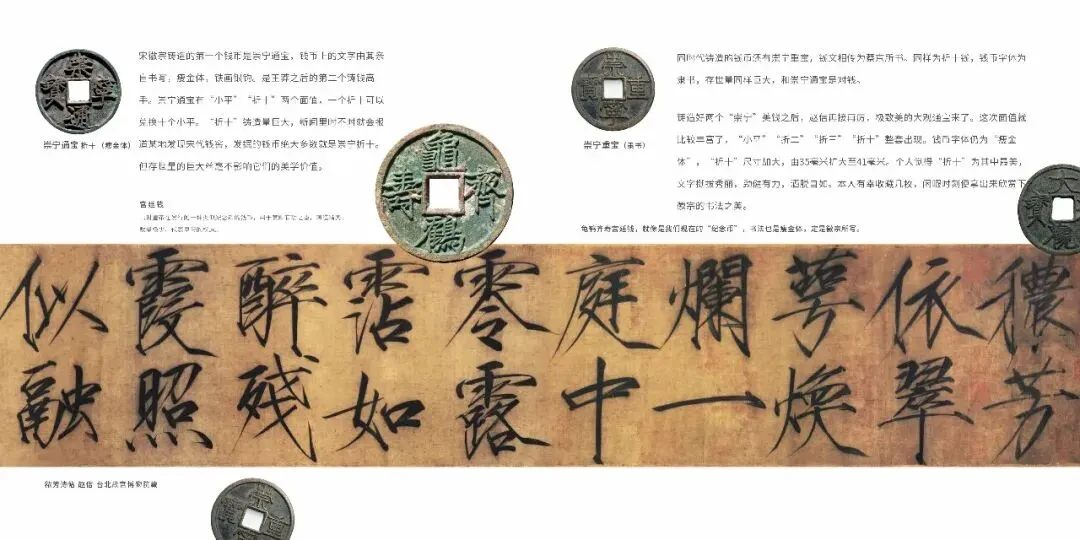 宋徽宗铸造的第一个钱币是崇宁通宝，钱币上的文字由其亲
自书写，瘦金体，铁画银钩。是王莽之后的第二个铸钱高
手。崇宁通宝有“小平”“折十”两个面值，一个折十可以
兑换十个小平。“折十”铸造量巨大，新闻里时不时就会报
道某地发现宋代钱窖，发掘的钱币绝大多数就是崇宁折十。
但存世量的巨大丝毫不影响它们的美学价值。
崇宁通宝 折十（瘦金体）
宫廷钱
崇宁通宝
龜鶴齊壽
同时代铸造的钱币还有崇宁重宝，钱文相传为蔡京所书。同样为折十钱，钱币字体为
隶书，存世量同样巨大，和崇宁通宝是对钱。
崇宁重宝（隶书）
崇寧重寳
铸造好两个“崇宁”美钱之后，赵佶再接再厉，极致美的大观通宝来了。这次面值就
比较丰富了，“小平”“折二”“折三”“折十”整套出现。钱币字体仍为“瘦金
体”，“折十”尺寸加大，由35毫米扩大至41毫米。个人觉得“折十”为其中最美，
文字挺拔秀丽，劲健有力，洒脱自如。本人有幸收藏几枚，闲暇时刻便拿出来欣赏下
徽宗的书法之美。
龟鹤齐寿宫廷钱，就像是我们现在的“纪念币”，书法也是瘦金体，定是徽宗所写。
穠芳
依翠
萼煥
爛一
庭中
零露
霑如
醉殘
霞照
似融
秾芳诗帖 赵佶 台北故宫博物院藏